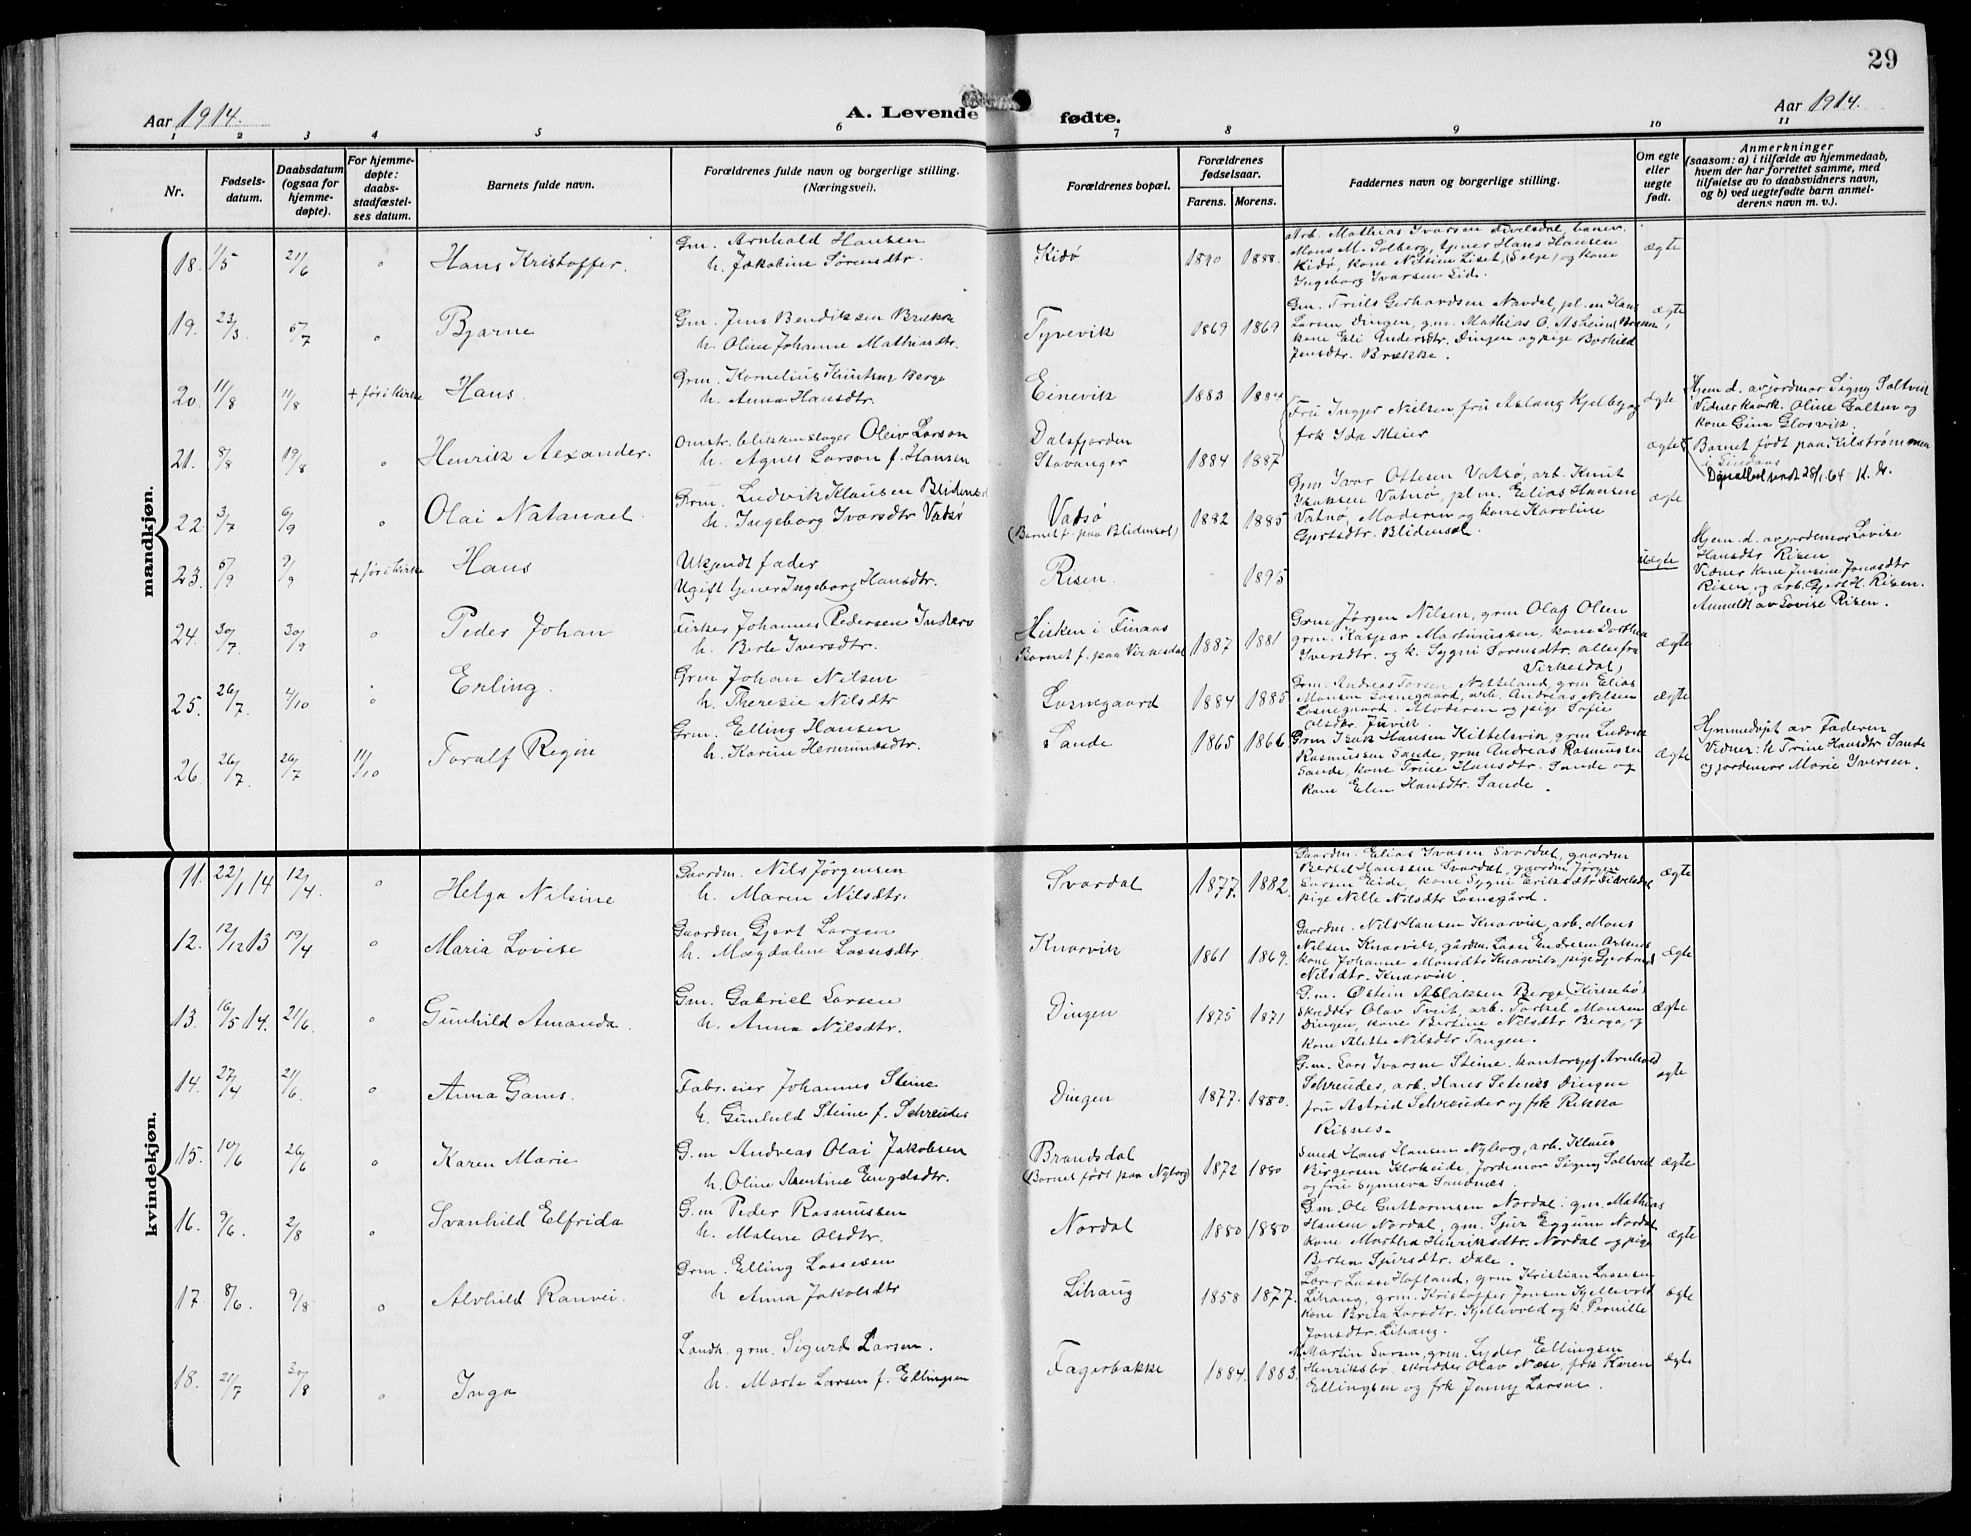 29
Aar 1914.
A. Levende fødte.
Aar 1914.
1 2 3 4 5 6 7 8 9 10 11
Nr.
Fødsels-
datum.
Daabsdatum
(ogsaa for
hjemme-
døpte).
For hjemme-
døpte:
daabs-
stadfæstel-
ses datum.
Barnets fulde navn.
Forældrenes fulde navn og borgerlige stilling.
(Næringsvei).
Forældrenes bopæl.
Forældrenes
fødselsaar.
Farens. Morens.
Faddernes navn og borgerlige stilling.
Om egte
eller
uegte
født.
Anmerkninger
(saasom: a) i tilfælde av hjemmedaab,
hvem der har forrettet samme, med
tilføielse av to daabsvidners navn,
og b) ved uegtefødte barn anmel-
derens navn m. v.).
mandkjøn.
18. 1/5 21/6 " Hans Kristoffer.
Gm. Arnhold Hansen
h. Jakobine Sørensdtr.
Kidø 1890 1888.
Arb. Mathias Ivarsen
Mons M. Solberg, tjener Hans Hansen
Kidø, kone Nilsine Liset, (Selje) og kone
Ingeborg Ivarsen Eide.
ægte
19. 23/3 5/7 " Bjarne
Gm. Jens Bendiksen Brække
h. Oline Johanne Mathiasdtr.
Tyvevik 1869 1869
Gm. Truls Gerhardsen Navdal, pl.m Hans
Larsen Dingen, g.m. Mathias O. Asheim
kone Eli Andersdtr. Dingen og pige Borhild
Jensdtr. Brække.
ægte
20. 11/8 11/8 + før i kirke Hans.
Grm. Kornelius Knutsen Berge
h. Anna Hansdtr.
Einevik 1883 1884
Fru Ingger Nielsen, fru Aslaug Kjelby og
frk Ida Meier
ægte
Hjem.d. av jordmor Signy Saltveit
Vidner: Oline Galten og
kone Gina Glosvik.
21. 8/8 19/8 " Henrik Alexander.
Omstr. blikkenslager Oleiv Larson
h. Agnes Larson f. Hansen
Dalsfjorden
Stavanger 1884 1887
ægte
Barnet født paa Kilstrømmen
i Gulen
22 3/7 6/9 " Olai Natanael.
Grm. Ludvik Klausen Blidensol
h. Ingeborg Ivarsdtr Vatsø
Vatsø
(Barnet f. paa Blidensol)
1882 1885
Grm Ivar Ottesen Vatsø, arb. Knut
Isaksen Vatnø, pl.m. Elias Hansen
Vatnø, Moderen og kone Karoline
Gjertsdtr. Blidensol.
ægte
23. 5/9 9/9 + før i kirke Hans
Ukjendt fader
Ugift tjener Ingeborg Hansdtr.
Risen. 1895
uægte
Hjem.d. av jordemor Lovise
Hansdtr Risen
Vidner kone Jensine Jonasdtr
Risen og arb. Gjert H. Risen.
Anmeldt av Lovise Risen.
24. 30/7 30/9 " Peder Johan
Fisker Johannes Pedersen Indrev
h. Berte Iversdtr.
Hisken i Finaas
Barnet f. paa Virkesdal
1887 1881
Grm Jørgen Nilsen, grm Olaf Olsen
grm. Kaspar Martinussen, kone Dorthea
Iversdtr. og k. Sygni Sørensdtr. alle fra
Virkesdal,
ægte
25. 26/7 4/10 " Erling.
Grm Johan Nilsen
h. Therese Nilsdtr
Losnegaard 1884 1885
Grm. Andreas Torsen Netteland, grm Elias
Monsen Losnegaard, arb. Andreas Nilsen
Losnegaard. Moderen og pige Sofie
Olsdtr. Juvik.
ægte
26 26/7 26/7 11/10 Toralf Regin
Grm. Elling Hansen
h. Karine Hermundsdtr.
Sande 1865 1866
Grm Isak Hansen Kittelsvik, grm Ludvik
Rasmussen Sande, grm Andreas Rasmussen
Sande, kone Trine Hansdtr. Sande og
kone Elen Hansdtr. Sande.
ægte
Hjemmedøpt av Faderen
Vidner: h Trine Hansdtr Sande
og jordemor Marie Iversen.
kvindekjøn.
11. 22/1 14 12/4 " Helga Nilsine
Gaardm. Nils Jørgensen
h. Maren Nilsdtr.
Svardal 1877. 1882.
Gaardm. Elias Ivarsen Svardal, gaardm
Bertel Hanssen Svardal, gaardm Jørgen
Larsen Eide, kone Sygni Eriksdtr
pige Nelle Nilsdtr Losnegård.
ægte
12. 12/12 13 19/4 " Maria Lovise
Gaardm Gjert Larsen
h. Magdalene Lassesdtr.
Knarvik 1861 1869.
Gaardm. Nils Hansen Knarvik, arb. Mons
Nilsen Knarvik, gårdm. Lasse Endresen
kone Johanne Monsdtr Knarvik, pige Gjertrud
Nilsdtr. Knarvik.
ægte
13. 16/5 14. 21/6. " Gunhild Amanda.
Gm. Gabriel Larsen
h. Anna Nilsdtr.
Dingen 1875 1871
G.m. Østein Aslaksen Berge (Kirkebø)
skredder Olav Tveit, arb. Torkel Monsen
Dingen, kone Bertine Nilsdtr Berge, og
kone Alette Nilsdtr Tangen.
ægte
14. 27/4 21/6. " Anna Gams.
Fabr.eier Johannes Steine
h. Gunhild Steine f. Schreuder
Dingen 1877. 1880.
G.m. Lars Ivarsne Steine, kontorsjef Arnhold
Schreuder, arb. Hans Setenes Dingen
fru Astrid Schreuder og frk Rikka
Risnes.
ægte
15. 10/6 26/6 " Karen Marie
G.m Andreas Olai Jakobsen
h. Oline Arentine Engelsdtr.
Brandsdal
(Barnet født paa Nyborg)
1872 1880
Smed Hans Hansen Nyborg, arb. Klaus
Birgersen Kloheide, Jordemor Signy Saltveit
og fru Synneva Sandnes.
ægte
16. 9/6. 2/8 " Svanhild Elfrida
G.m Peder Rasmussen
h. Malene Olsdtr.
Nordal 1880 1880
G.m. Ole Guttormsen Nordal, gm. Mathias
Hansen Nordal, gm. Sjur Eggum Nordal
kone Martha Henriksdtr. Nordal og pige
Berten Sjursdtr. Dale.
ægte
17. 8/6. 9/8 " Alvhild Ranvei.
Grm. Elling Lassesen
h Anna Jakobsdtr
Lihaug 1858 1877.
Lærer Lasse Hofland, grm Kristian Lassesen
Lihaug, grm. Kristoffer Jonsen Kjellevold
kone Brita Larsdtr. Kjellevold og k. Pernille
Jonsdtr. Lihaug.
ægte
18. 21/7 30/8 " Inga
Landh. grm. Sigurd Larsen.
h. Marta Larsen f. Ellingsen
Fagerbakke 1884. 1883.
Martin Larsen, grm. Lyder Ellingsen
Henriksbø, skredder Olav Næse, frk Karen
Ellingsen og frk Jenny Larsen.
ægte